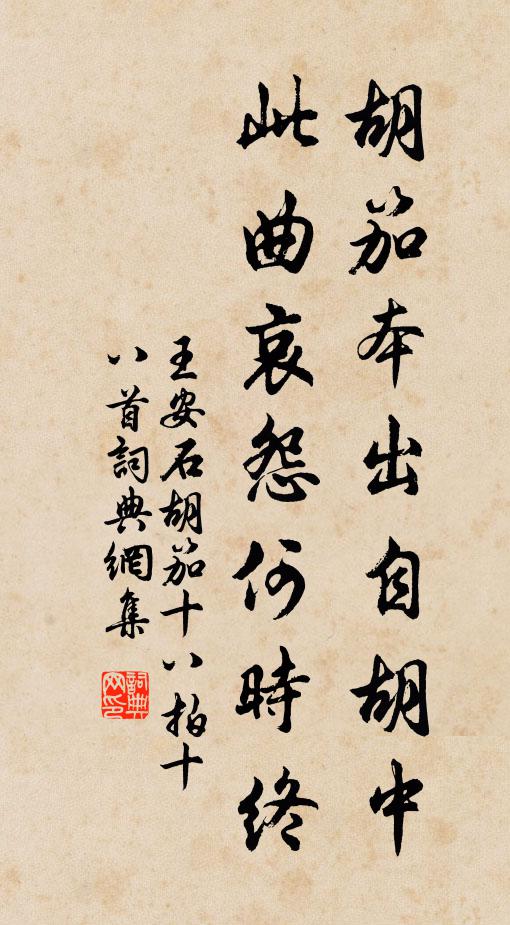 胡笳本出自胡中
此曲哀怨何時終
王安石胡笳十八拍十
八首詞典網集
詞典
网印